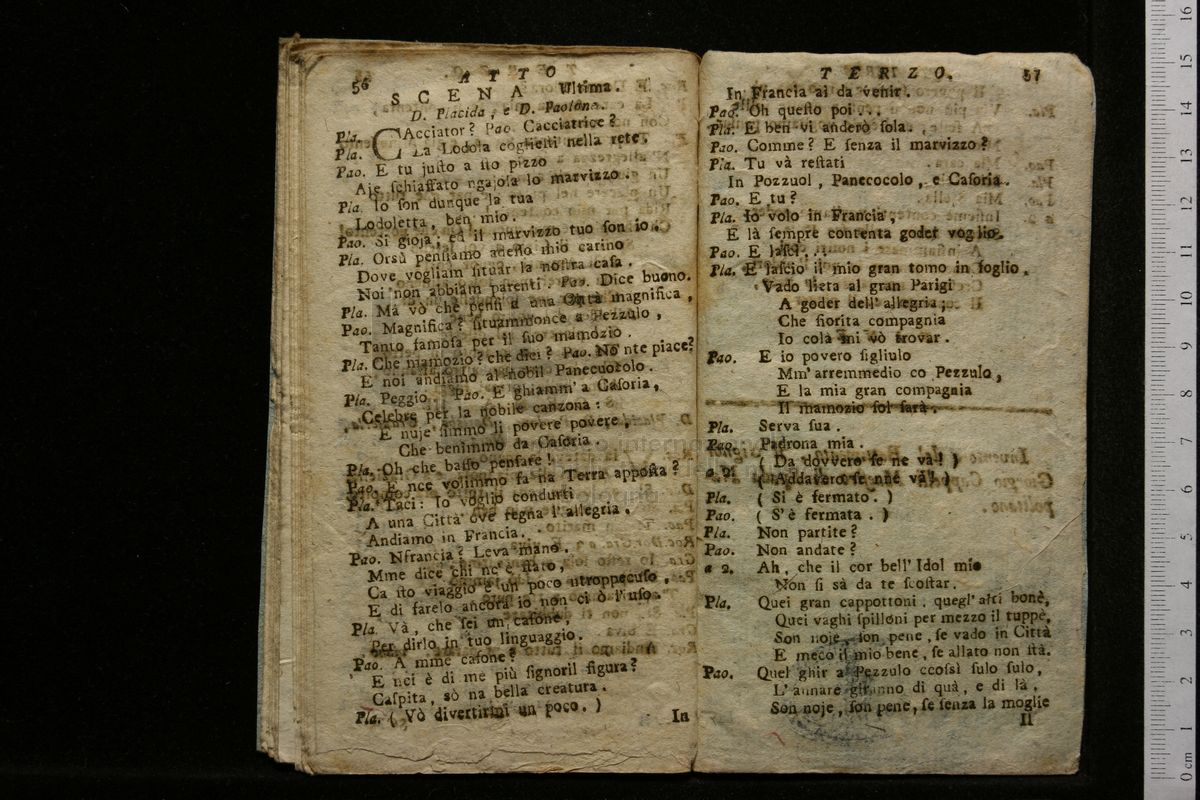 56 ATTO
SCENA Ultima.
D. Placida, e D. Paolone.
Pla. CAcciator? Pao. Cacciatrice?
Pla. La Lodola cogliesti nella rete.
Pao. E tu justo a sto pizzo
Aje schiaffato ngajola lo marvizzo.
Pla. Io son dunque la tua
Lodoletta, ben mio.
Pao. Si gioja, ed il marvizzo tuo son io.
Pla. Orsù pensiamo adesso mio carino
Dove vogliam situar la nostra casa.
Noi non abbiam parenti. Pao. Dice buono.
Pla. Ma vò che pensi a una Città magnifica,
Pao. Magnifica? situammonce a Pezzulo,
Tanto famosa per il suo mamozio.
Pla. Che mamozio? che dici? Pao. No nte piace?
E noi andiamo al nobil Panecuocolo.
Pla. Peggio. Pao. E ghiamm' a Casoria,
Celebre per la nobile canzona:
E nuje simmo li povere povere,
Che benimmo da Casoria.
Pla. Oh che basso pensare!
Pao. E nce volimmo fa na Terra apposta?
Pla. Taci: Io voglio condurti
A una Città ove regna l'allegria.
Andiamo in Francia.
Pao. Nfrancia? Leva mano.
Mme dice chi nc'è stato,
Ca sto viaggio è un poco ntroppecuso,
E di farelo ancora io non ci ò l'uso.
Pla. Và, che sei un casone,
Per dirlo in tuo linguaggio.
Pao. A mme casone?
E nci è di me più signoril figura?
Caspita, sò na bella creatura.
Pla. ( Vò divertirmi un poco. )
In
TERZO. 57
In Francia ai da venir.
Pao. Oh questo poi...
Pla. E ben vi anderò sola.
Pao. Comme? E senza il marvizzo?
Pla. Tu và restati
In Pozzuol, Panecocolo, e Casoria.
Pao. E tu?
Pla. Io volo in Francia,
E là sempre contenta goder voglio.
Pao. E lasci...
Pla. E lascio il mio gran tomo in foglio.
Vado lieta al gran Parigi
A goder dell'allegria;
Che fiorita compagnia
Io colà mi vò trovar.
Pao. E io povero figliulo
Mm'arremmedio co Pezzulo,
E la mia gran compagnia
Il mamozio sol sarà.
Pla. Serva sua.
Pao. Padrona mia.
( Da dovvero se ne và! )
a 2. ( Addavero se nne và! )
Pla. ( Si è fermato. )
Pao. ( S'è fermata. )
Pla. Non partite?
Pao. Non andate?
a 2. Ah, che il cor bell'Idol mio
Non si sà da te scostar.
Pla. Quei gran cappottoni, quegl'alti bonè,
Quei vaghi spilloni per mezzo il tuppè,
Son noje, son pene, se vado in Città
E meco il mio bene, se allato non stà.
Pao. Quel ghir a Pezzulo ccossì sulo sulo,
L'annare girunno di quà, e di là,
Son noje, son pene, se senza la moglie
Il